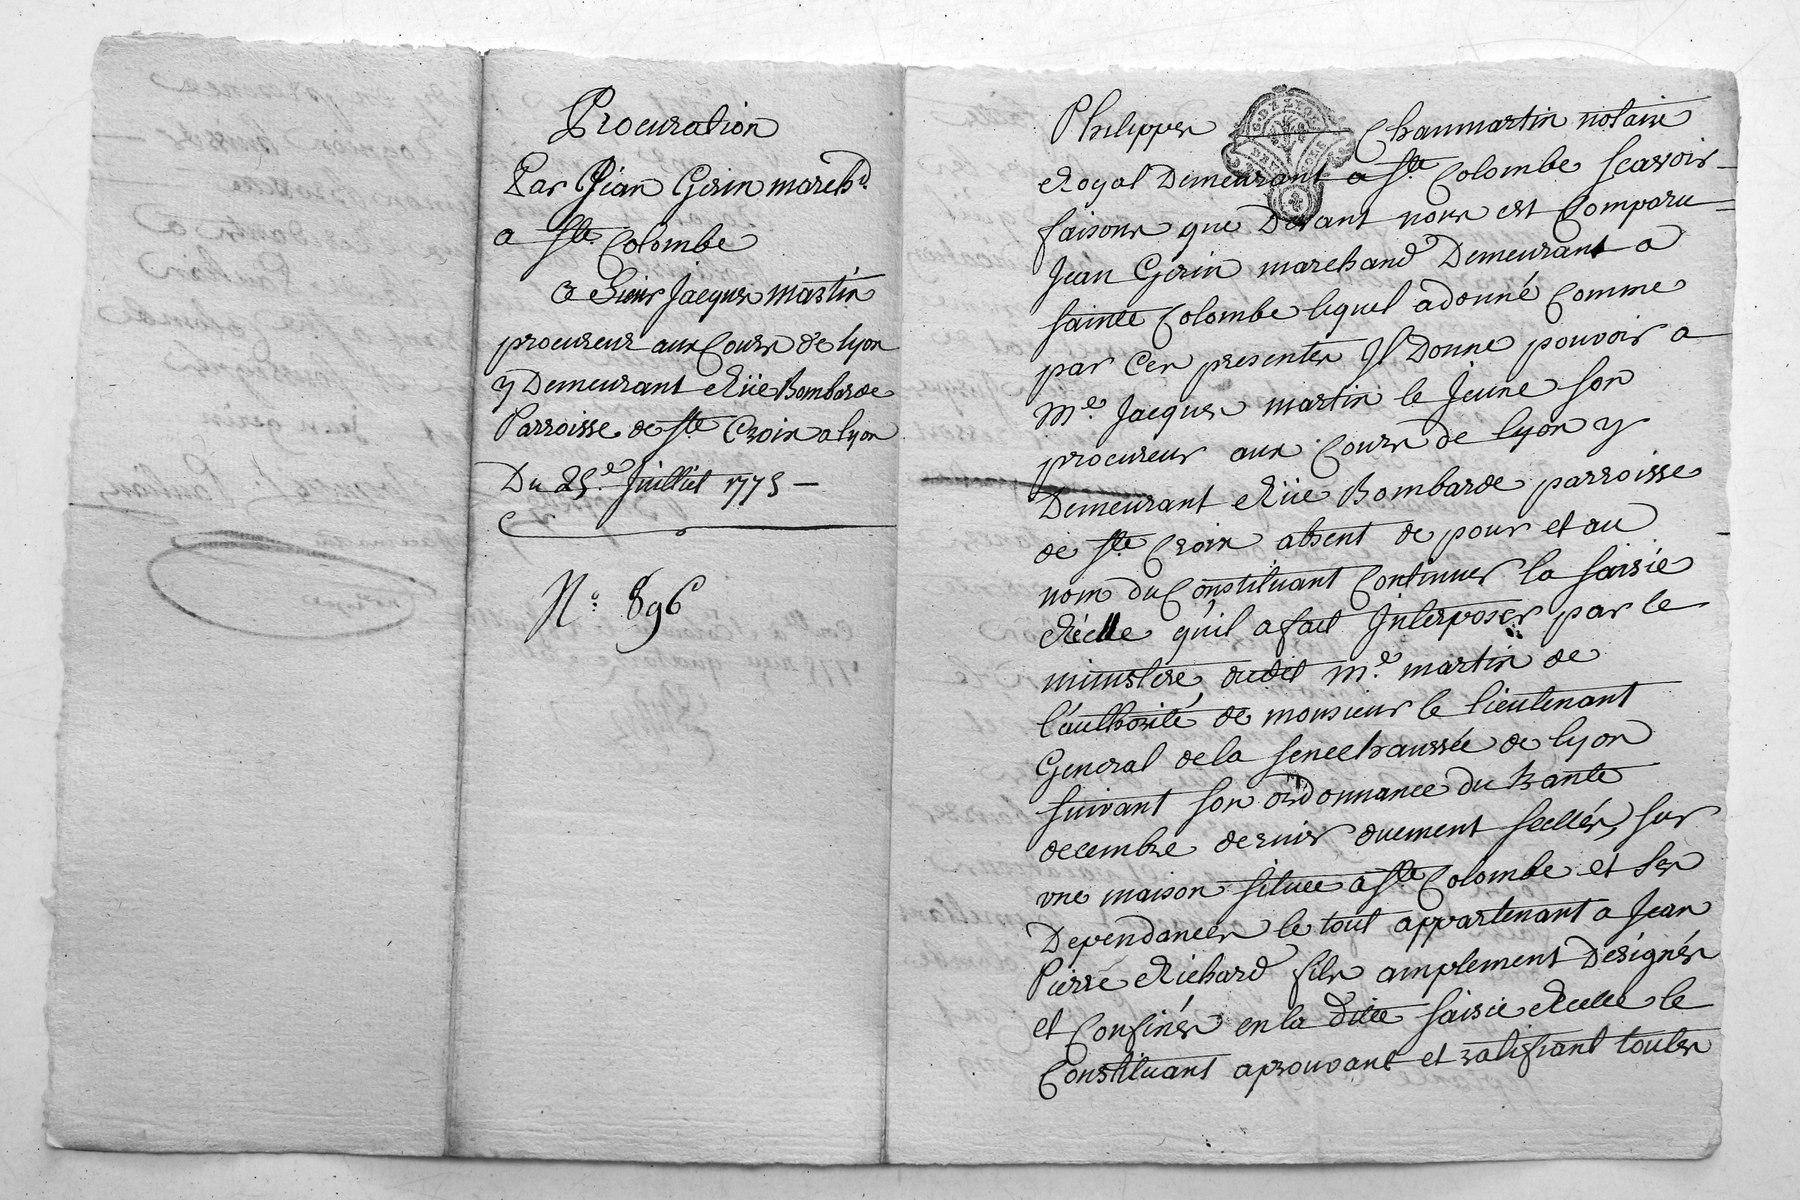 Procuration
Par Jean Gerin march.d
a Ste. Colombe
a Sieur Jacques Martin
procureur aux Cours de lyon
y Demeurant Rüe Bombarde
Parroisse de Ste Croix a lyon
Du 25.e Juilliet 1775 —
N.o 896
Philippes Chanmartin notaire
Royal Demeurant a Ste Colombe scavoir
faisons que Devant nous est Comparu
Jean Gerin marchand Demeurant a
sainte Colombe lequel a donné Comme
par Ces presentes Jl Donne pouvoir a
M.e Jacques martin le Jeune son
procureur aux Cours de lyon y
Demeurant Rüe Bombarde parroisse
de Ste Croix absent de pour et au
nom du Constituant Continuer la saisie
Réelle qu'il a fait Jnterposer par le
ministere dudit M.e martin de
l'authorité de monsieur le lieutenant
General de la senechaussée de lyon
suivant son ordonnance du trante
decembre dernier duement scellés, sur
une maison située a Ste Colombe et ses
Dependances le tout appartenant a Jean
Pierre Richard fils amplement Désignés
et Confinés en la dite saisie Reelle le
Constituant aprouvant et ratifiant toutes